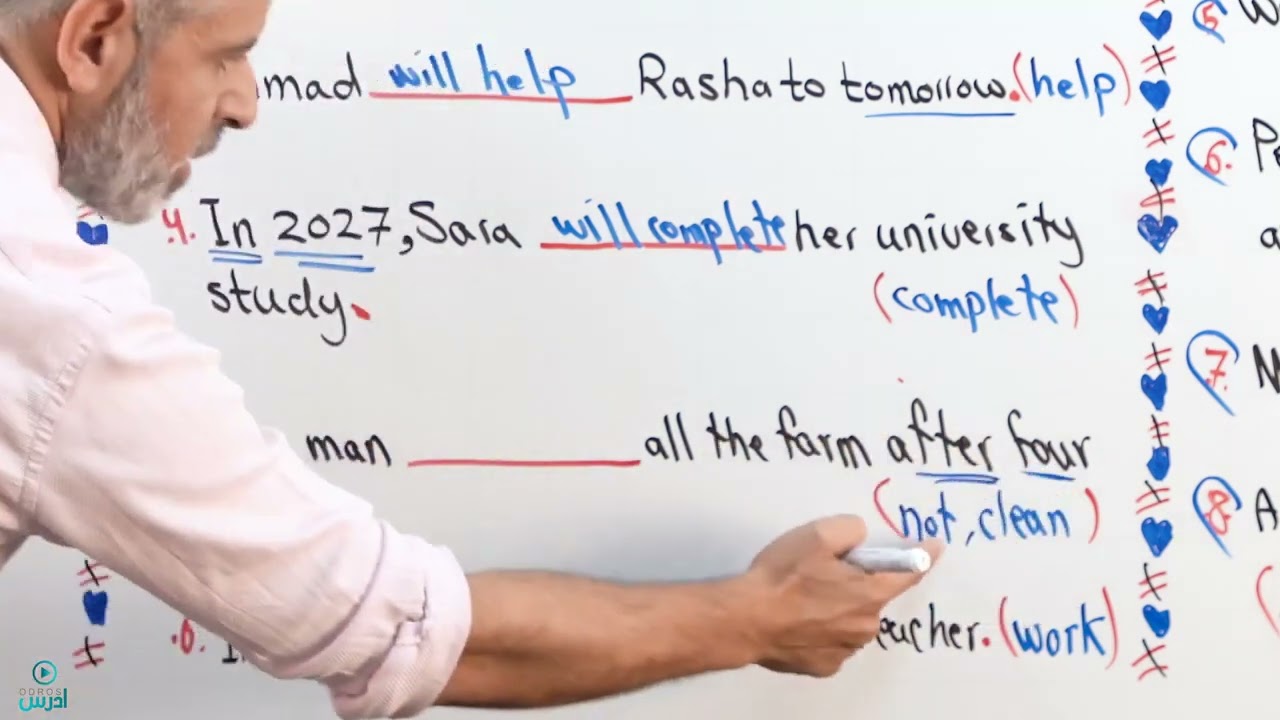 mad will help Rasha to tomorrow. (help)
4. In 2027, Sara will complete her university
study. (complete)
man all the farm after four
(not, clean)
eacher. (work)
5
6.
7.
8. A
ODROS
ادرس